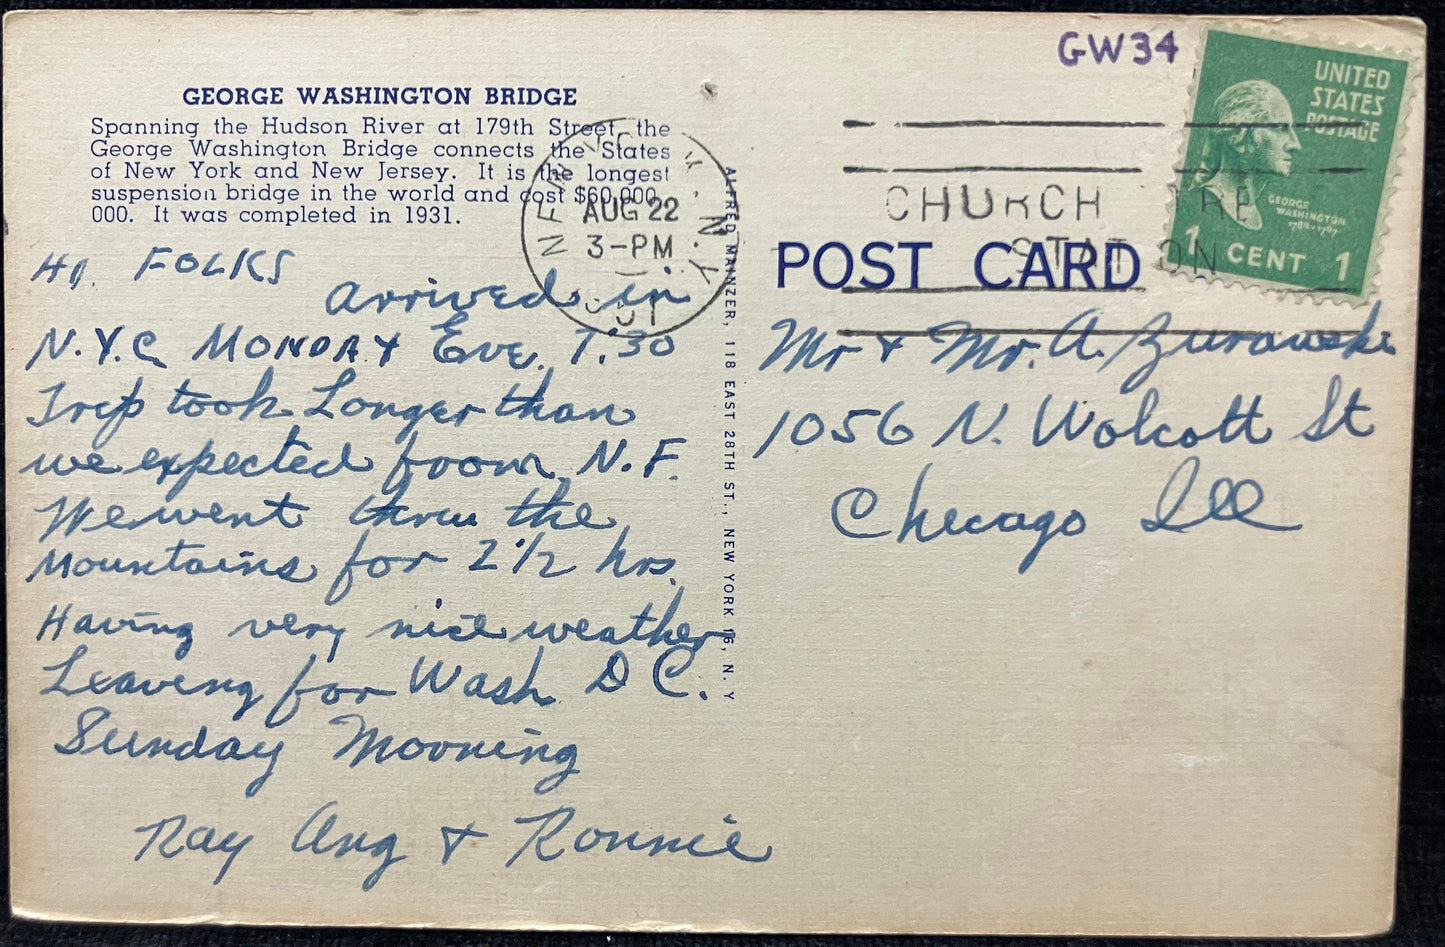 GEORGE WASHINGTON BRIDGE
Spanning the Hudson River at 179th Street, the
George Washington Bridge connects the States
of New York and New Jersey. It is the longest
suspension bridge in the world and cost $60,000,
000. It was completed in 1931.
Hi, FOLKS
Arrived in
N.Y.C MONDAY Eve. 7:30
Trip took Longer than
we expected from N.F.
We went thru the
Mountains for 2 1/2 hrs.
Having very nice weather
Leaving for Wash D C.
Sunday Morning
Ray Ang & Ronnie
ALFRED MAINZER, 118 EAST 28TH ST., NEW YORK 16, N. Y
GW34
UNITED
STATES
POSTAGE
GEORGE
WASHINGTON
1 CENT 1
NEW YORK, N.Y.
AUG 22
3-PM
CHURCH
STATION
POST CARD
Mr & Mr. A. Zurawski
1056 N. Wolcott St
Chicago Ill